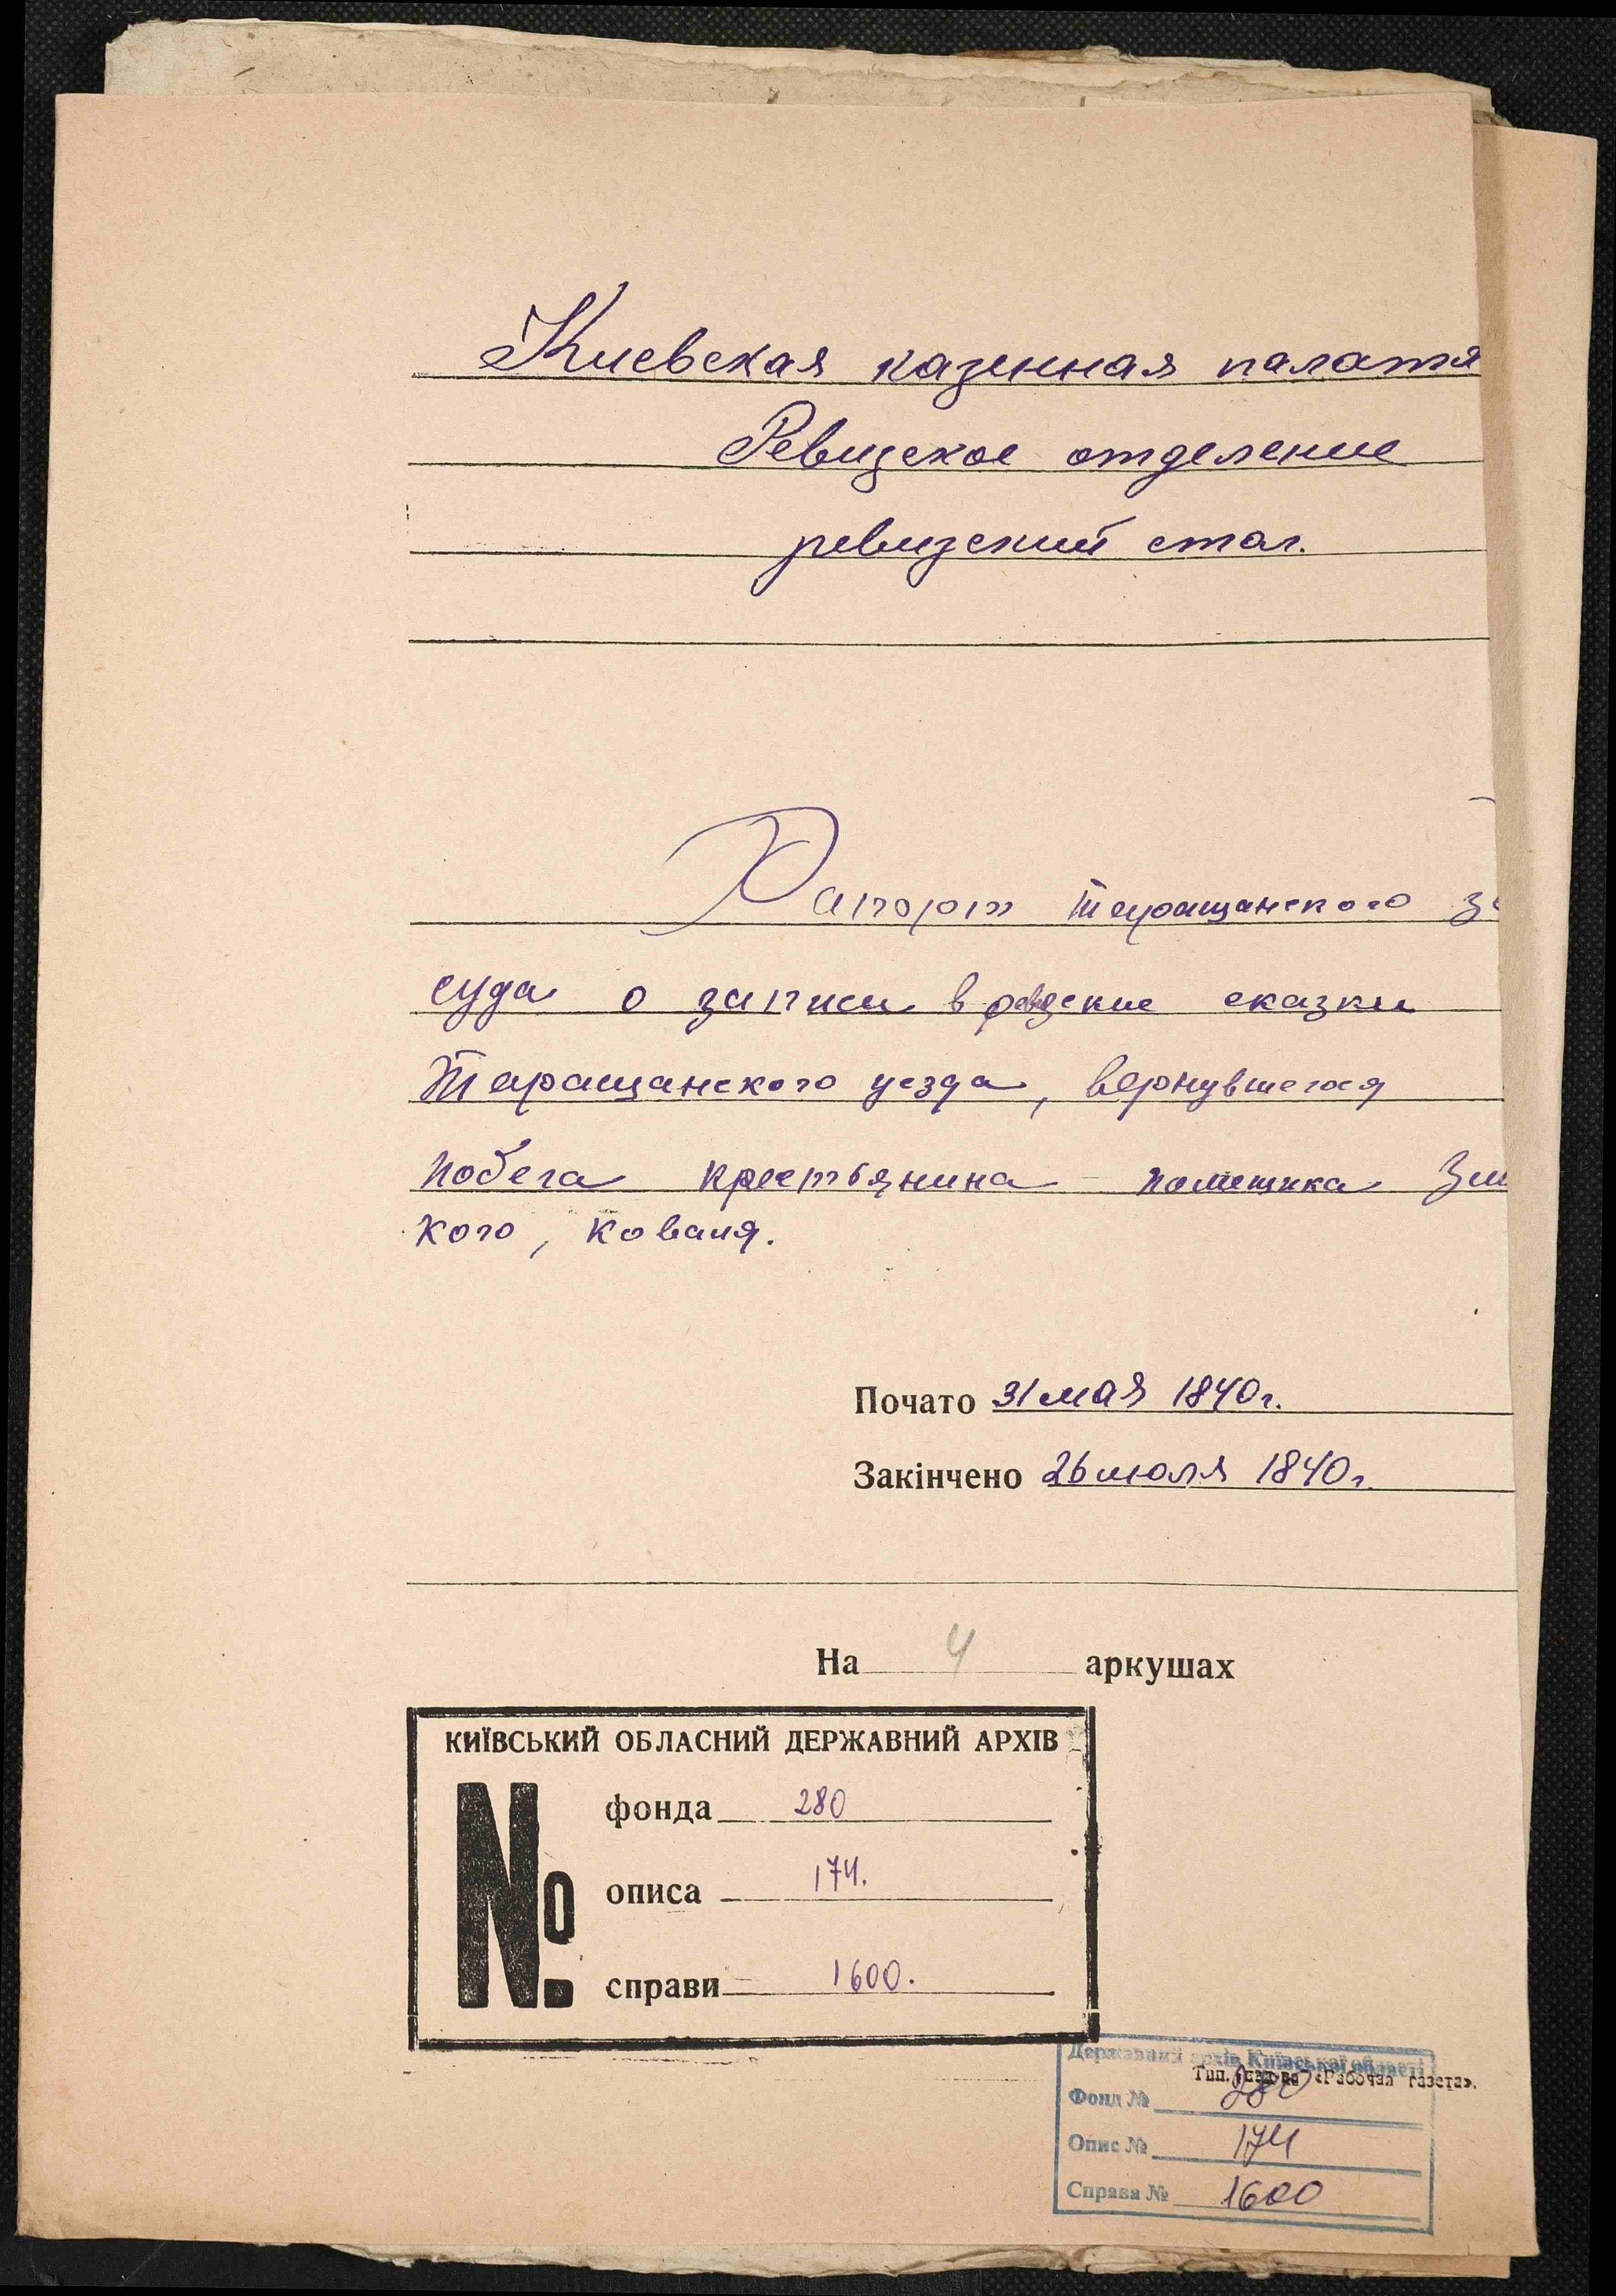 Киевская казенная палата
Ревизское отделение
ревизский стол.
Рапорт Таращанского з
суда о записи в ревизские сказки
Таращанского уезда, вернувшегося
побега крестьянина помещика Зи
кого, Коваля.
Почато 31 мая 1840 г.
Закінчено 26 июля 1840 г.
На 4 аркушах
КИЇВСЬКИЙ ОБЛАСНИЙ ДЕРЖАВНИЙ АРХІВ
№
фонда 280
описа 174.
справи 1600.
Державний архів Київської області
Тип. «Рабочая газета».
Фонд № 280
Опис № 174
Справа № 1600